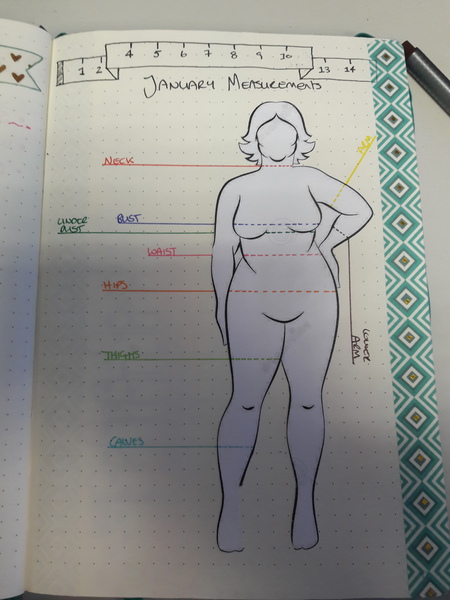 1 2 4 5 6 7 8 9 10 13 14
January Measurements
Arm
Neck
Under
Bust
Bust
Waist
Hips
Lower
Arm
Thighs
Calves